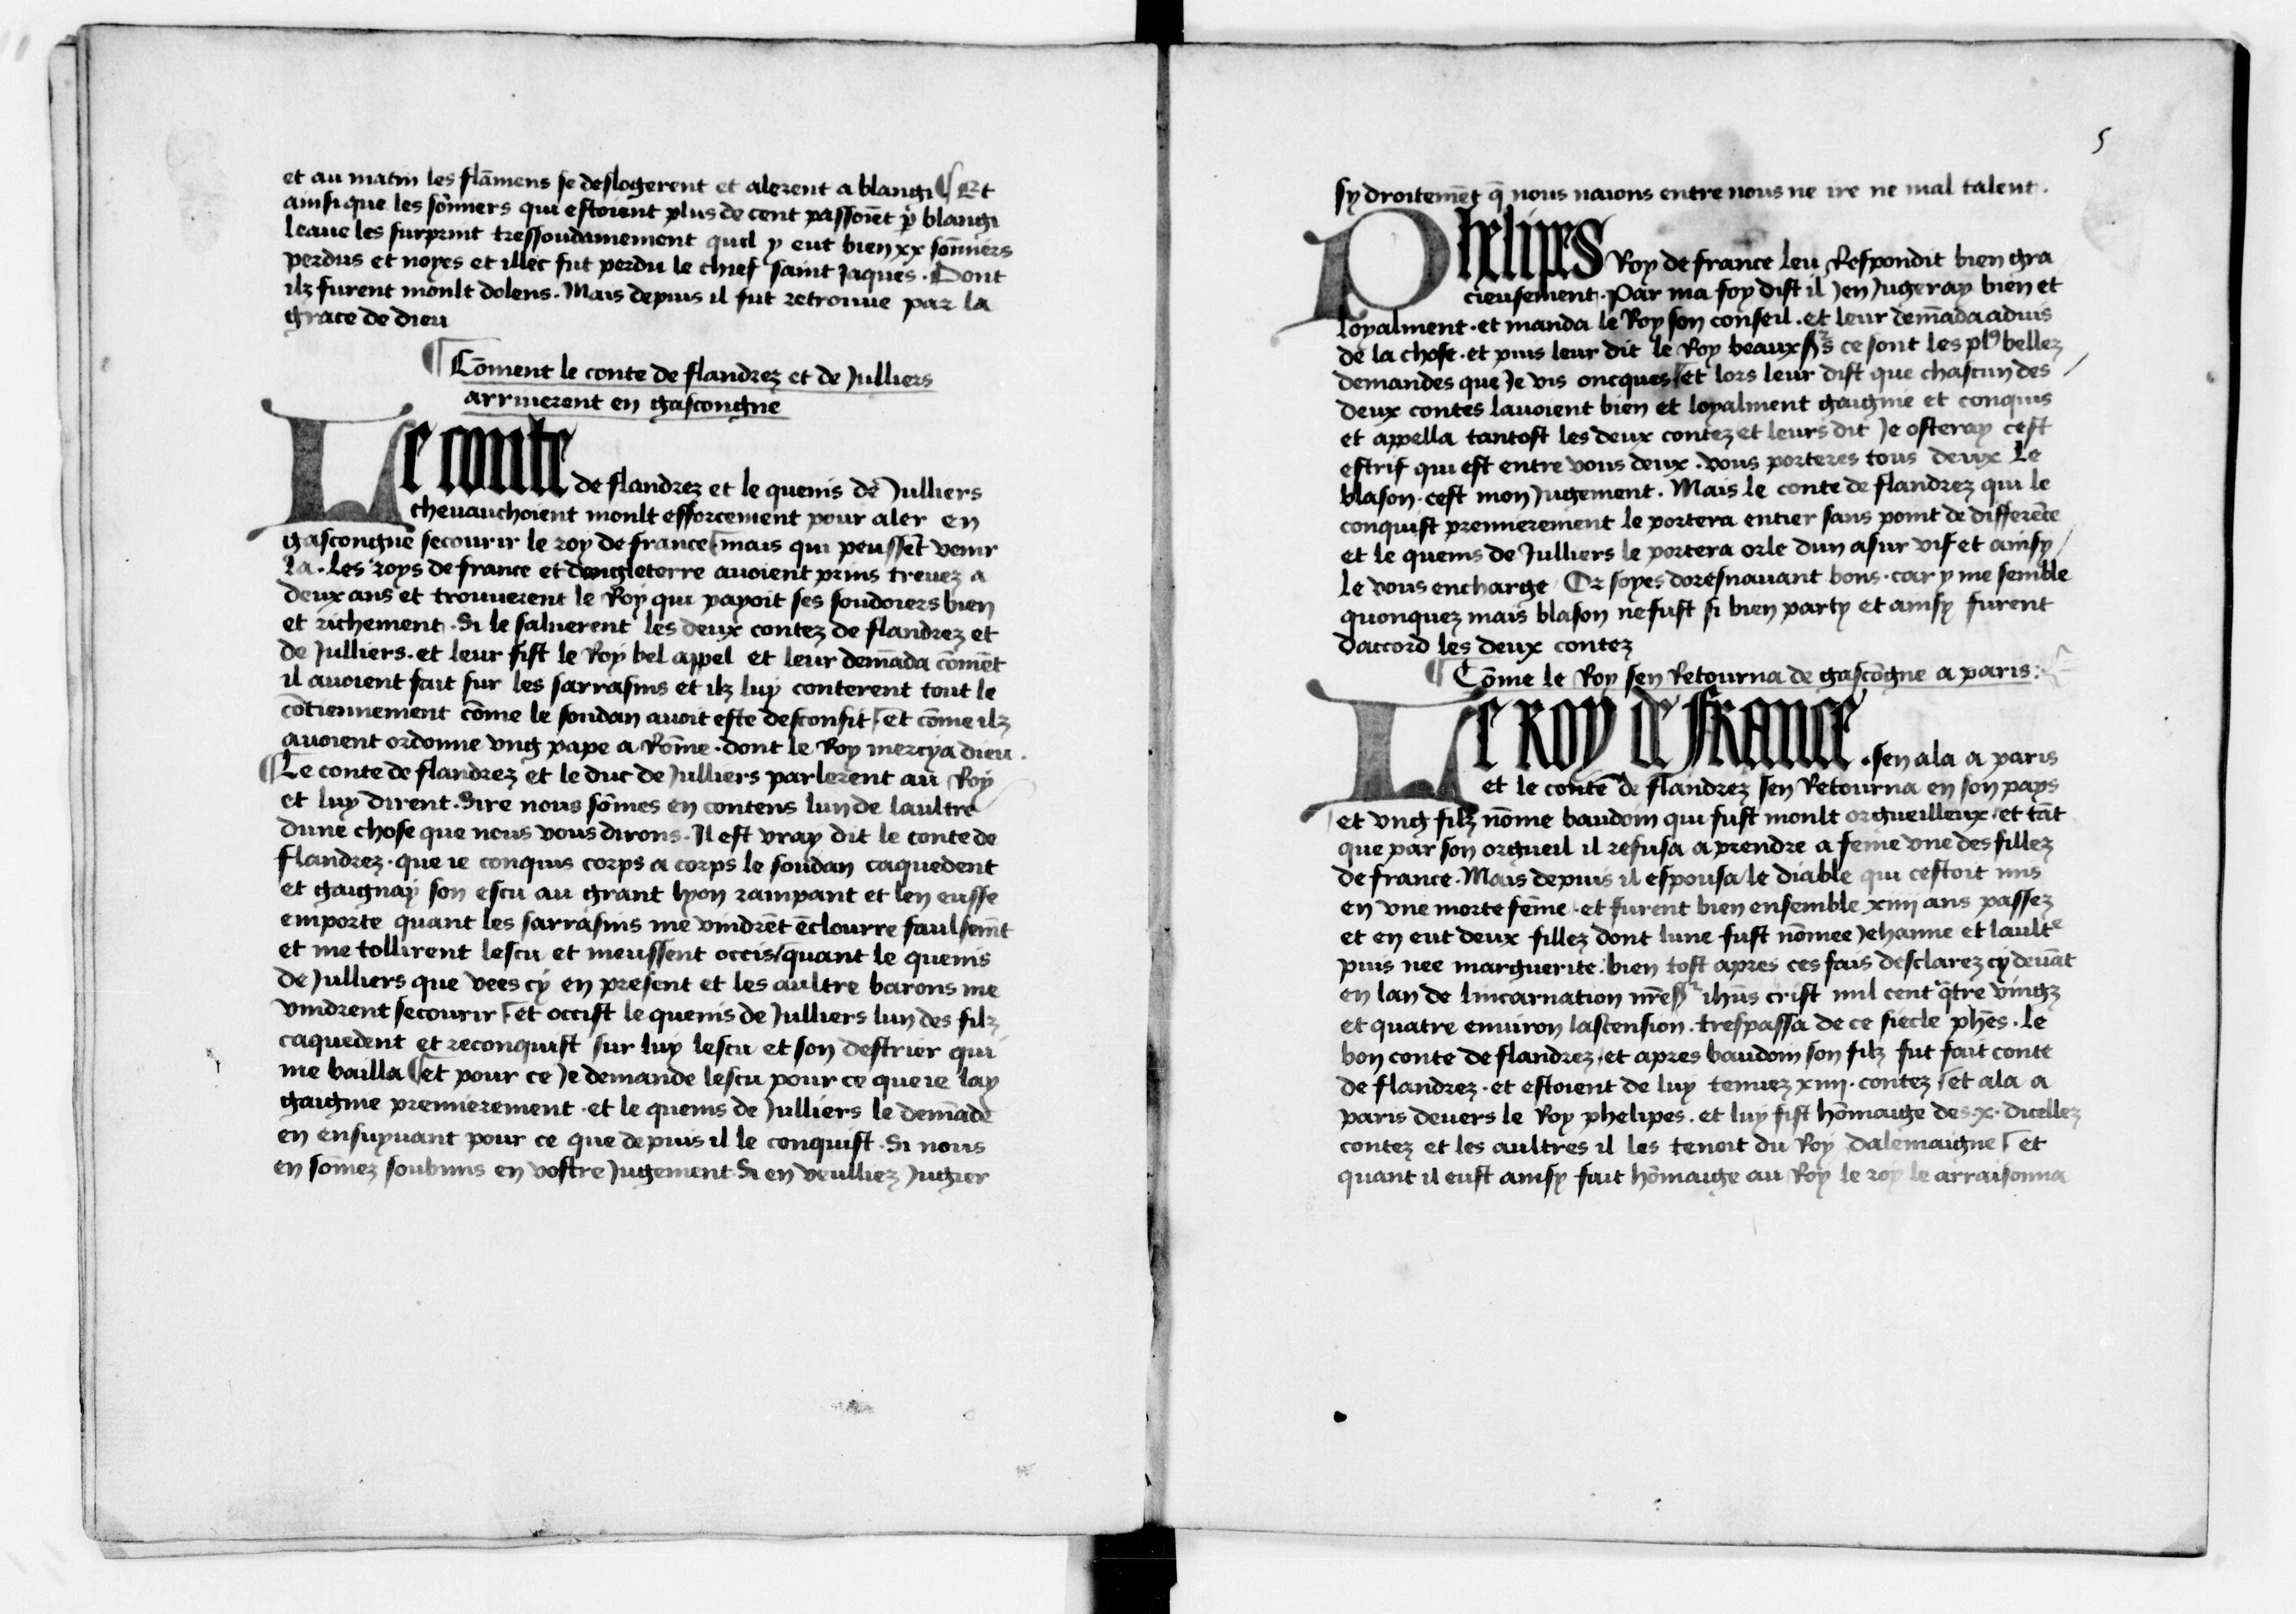 et au matin les flāmens se deslogerent et alerent a blangi ¶ Et
ainsi que les sōmiers qui estoient plus de cent passoiēt p̄ blangi
leaue les surprint tressoudainement quil y eut bien xx sōmiers
perdus et noyes et illec fut perdu le chief saint Jaques . Dont
ilz furent moult dolens . Mais depuis il fut retrouue par la
grace de dieu
¶ Cōment le conte de flandrez et de Julliers
arriuerent en gascongne
Le conte de flandrez et le quenis de Julliers
cheuauchoient moult efforcement pour aler en
gascongne secourir le roy de france ¶ mais qui peussēt venir
la . Les roys de france et dangleterre auoient prins treuez a
deux ans et trouuerent le Roy qui payoit ses soudoiers bien
et richement . Si le saluerent les deux contez de flandrez et
de Julliers . et leur fist le Roy bel appel et leur demāda cōmēt
il auoient fait sur les sarrasins et ilz luy conterent tout le
cōtiennement cōme le soudan auoit este desconfit ¶ et cōme ilz
auoient ordonne vng pape a Rōme . dont le Roy mercya dieu .
¶ Le conte de flandrez et le duc de Julliers parlerent au Roy
et luy dirent . Sire nous sōmes en contens lun de laultre
dune chose que nous vous dirons . Il est vray dit le conte de
flandrez . que ie conquis corps a corps le soudan caquedent
et gaignay son escu au grant lyon rampant et len eusse
emporte quant les sarrasins me vindrēt ēclourre faulsemēt
et me tollirent lescu et meussent occis / quant le quenis
de Julliers que vees cy en present et les aultre barons me
vindrent secourir ¶ et occist le quenis de Julliers lun des filz
caquedent et reconquist sur luy lescu et son destrier qui
me bailla ¶ et pour ce Je demande lescu pour ce que ie lay
gaignie premierement . et le quenis de Julliers le demāde
en ensuyuant pour ce que depuis il le conquist . Si nous
en sōmez soubmis en vostre Jugement Si en veulliez Jugier
5
sy droitemēt q̄ nous naions entre nous ne ire ne mal talent .
Phelipes Roy de france leu Respondit bien gra
cieusement . Par ma foy dist il Jen Jugeray bien et
loyalment . et manda le Roy son conseil . et leur demāda aduis
de la chose . et puis leur dit le Roy beaux srs ce sont les pl9 bellez
demandes que Je vis oncques ¶ et lors leur dist que chascun des
deux contes lauoient bien et loyalment gaignie et conquis
et appella tantost les deux contez et leurs dit Je osteray cest
estrif qui est entre vous deux . vous porteres tous deux Le
blason . cest mon Jugement . Mais le conte de flandrez qui le
conquist premierement le portera entier sans point de differēce
et le quenis de Julliers le portera orle dun asur vif et ainsy /
le vous encharge / Or soyes doresnauant bons . car y me semble
quonquez mais blason ne fust si bien party et ainsy furent
daccord les deux contez
¶ Cōme le Roy sen Retourna de gascōgne a paris :
Le Roy de France . sen ala a paris
et le conte de flandrez sen Retourna en son pays
et vng filz nōme baudoin qui fust moult orgueilleux . et tāt
que par son orgueil il refusa a prendre a feme vne des fillez
de france . Mais depuis il espousa le diable qui cestoit mis
en vne morte fēme . et furent bien ensemble xiiii ans passez
et en eut deux fillez dont lune fust nōmee Jehanne et laulte
puis nee marguerite . bien tost apres ces fais desclarez cy deuāt
en lan de lincarnation nr̄e sr ihūs crist mil cent q̄tre vingz
et quatre enuiron lascension . trespassa de ce siecle phēs . le
bon conte de flandrez . et apres baudoin son filz fut fait conte
de flandrez . et estoient de luy tenuez xiiii . contez ¶ et ala a
paris deuers le Roy phelipes . et luy fist hōmaige des . x . dicellez
contez et les aultres il les tenoit du Roy dalemaigne ¶ et
quant il eust ainsy fait hōmaige au Roy le roy le arraisonna